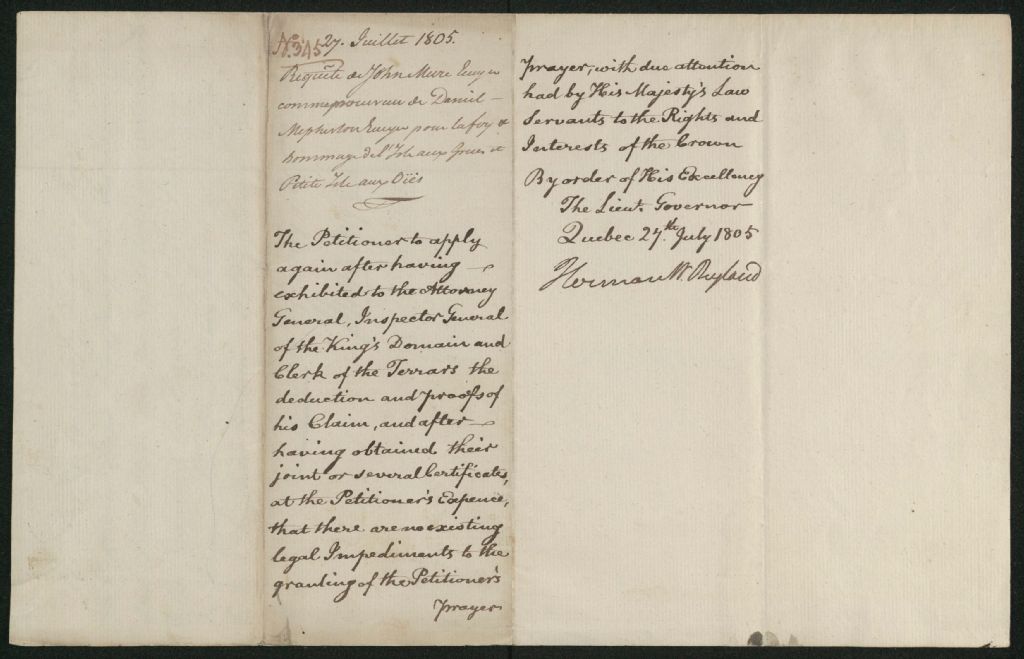 No. 345 27. Juillet 1805.
Requête de John Mure Ecuyer
comme procureur de Daniel
Mcpherson Ecuyer pour la foy et
hommage de l'Isle aux Grues et
Petite Isle aux Oïës
The Petitioner to apply
again after having
exhibited to the Attorney
General, Inspector General
of the King's Domain and
Clerk of the Terrars the
deduction and proofs of
his Claim, and after
having obtained their
joint or several Certificates,
at the Petitioner's Expence,
that there are no existing
legal Impediments to the
granting of the Petitioner's
prayer
prayer, with due attention
had by His Majesty's Law
Servants to the Rights and
Interests of the Crown
By order of His Excellency
The Lieut. Governor
Quebec 27.th July 1805
Herman W. Ryland